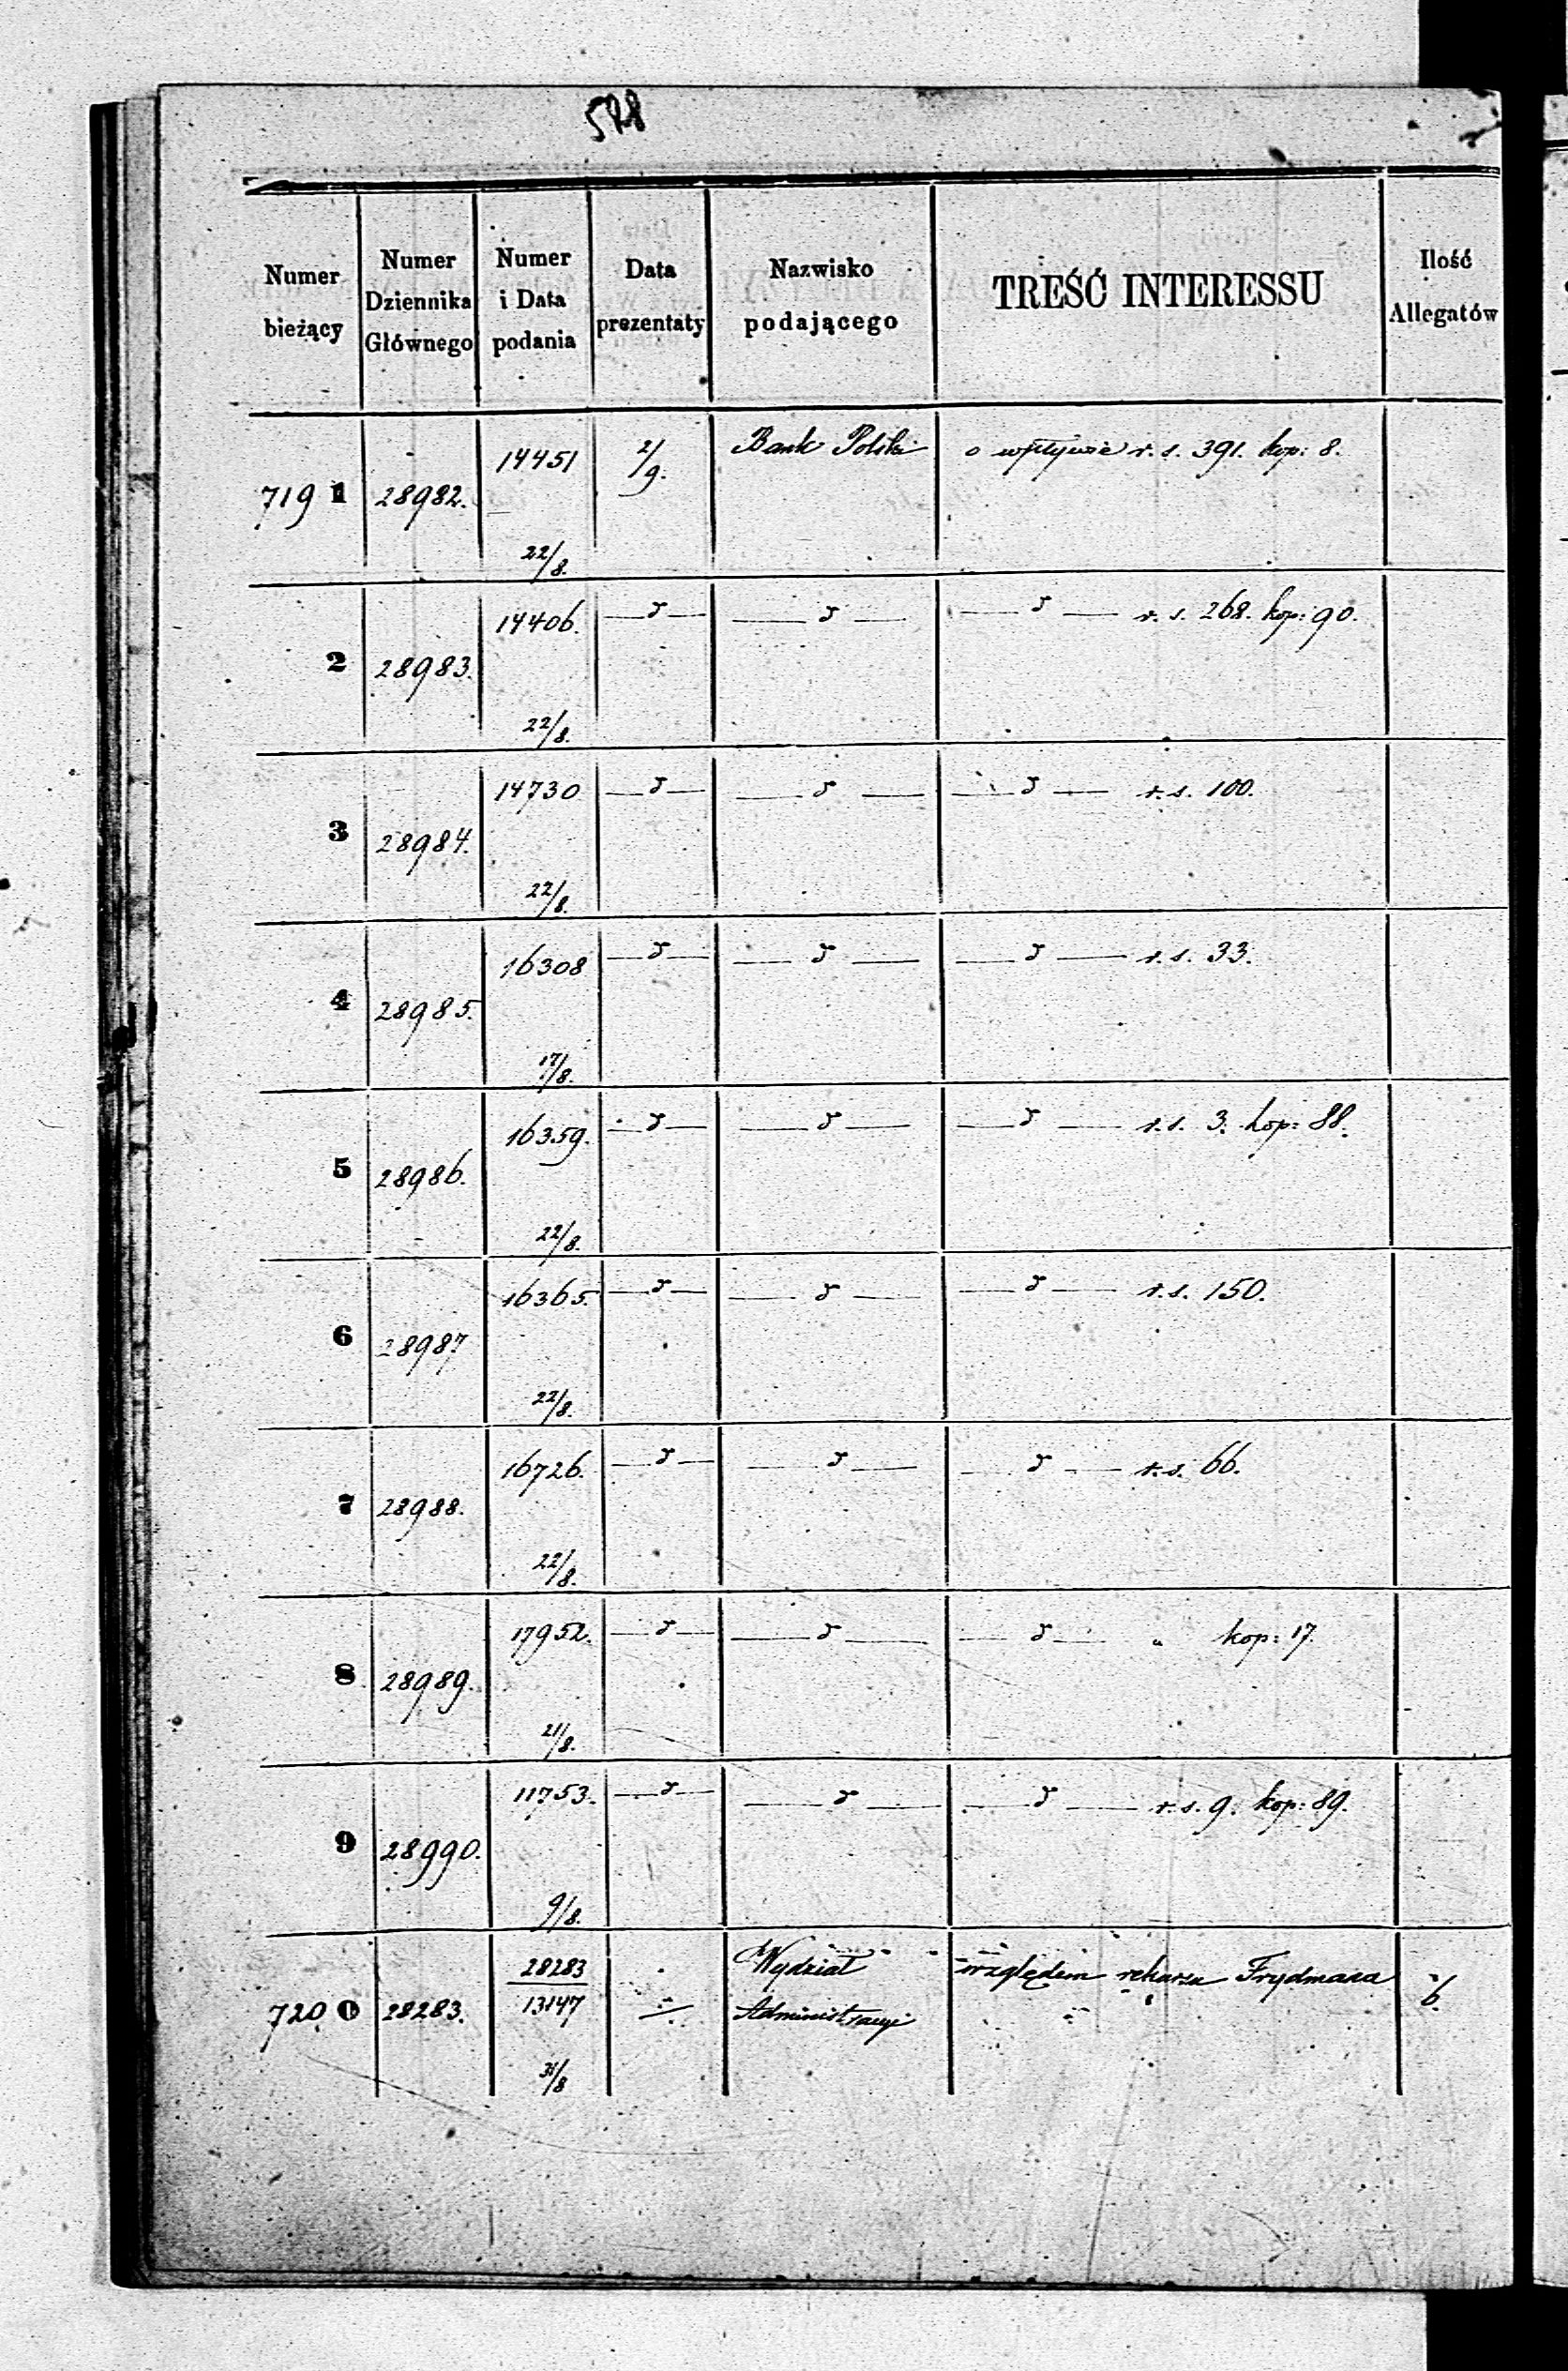 578
Numer bieżący | Numer Dziennika Głównego | Numer i Data podania | Data prezentaty | Nazwisko podającego | TREŚĆ INTERESSU | Ilość Allegatów
7191 | 28982. | 14451 22/8. | 2/9. | Bank Polski | o wpływie r. s. 391. kop: 8.
2 | 28983. | 14406. 22/8. | — d — | — d — | — d — r. s. 268. kop: 90.
3 | 28984. | 14730 22/8. | — d — | — d — | — d — r. s. 100.
4 | 28985. | 16308 17/8. | — d — | — d — | — d — r. s. 33.
5 | 28986. | 16359. 22/8. | — d — | — d — | — d — r. s. 3. kop: 88.
6 | 28987 | 16365. 22/8. | — d — | — d — | — d — r. s. 150.
7 | 28988. | 16726. 22/8. | — d — | — d — | — d — r. s. 66.
8 | 28989. | 17952. 21/8. | — d — | — d — | — d — " kop: 17.
9 | 28990. | 11753. 9/8. | — d — | — d — | — d — r. s. 9. kop: 89.
7200 | 28283. | 28283 / 13147 31/8 | Wydział Administracyi | względem Frydmana | 6.